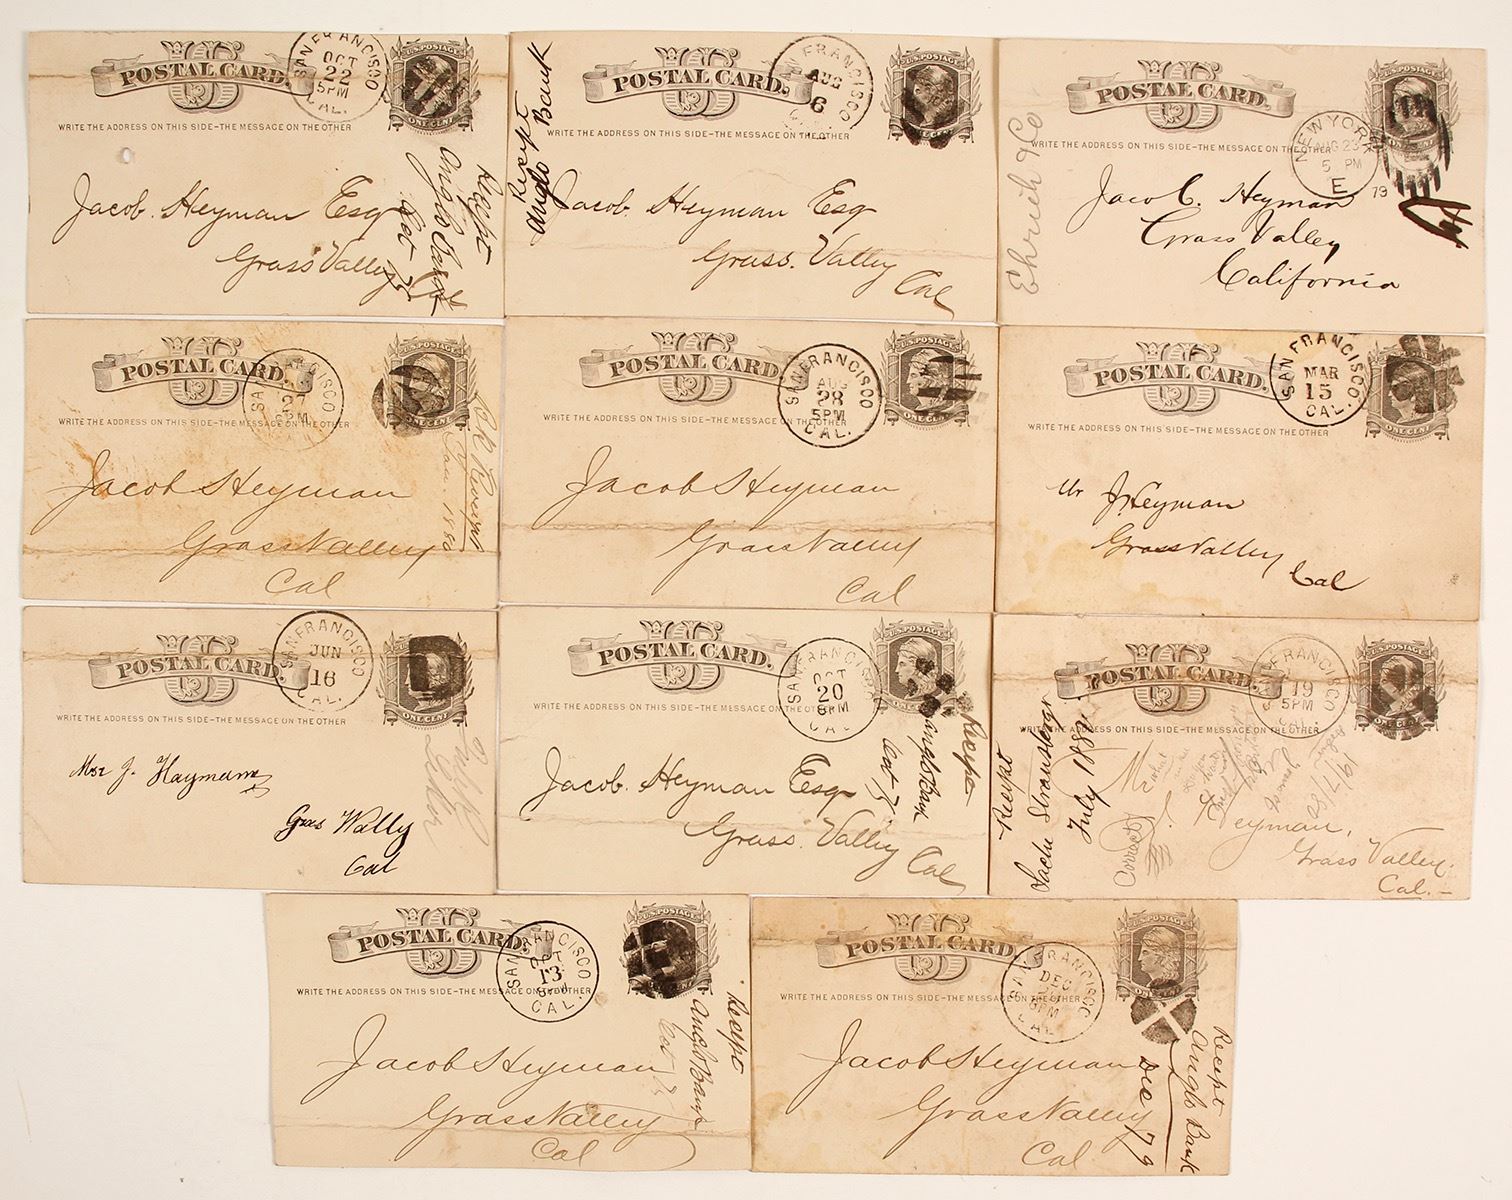 POSTAL CARD.
SAN FRANCISCO
OCT
22
5PM
CAL.
U.S. POSTAGE
ONE CENT
WRITE THE ADDRESS ON THIS SIDE–THE MESSAGE ON THE OTHER
Jacob. Heyman Esq
Grass Valley
Cal
Receipt
Oct 7
POSTAL CARD.
SAN FRANCISCO
AUG
6
ONE CENT
WRITE THE ADDRESS ON THIS SIDE–THE MESSAGE ON THE OTHER
Receipt
Anglo Bank
Jacob. Heyman Esq
Grass. Valley
Cal
POSTAL CARD.
U.S. POSTAGE
WRITE THE ADDRESS ON THIS SIDE–THE MESSAGE ON THE OTHER
NEW YORK
AUG 23
5 PM
E
79
Ehrich & Co
Jacob. Heyman
Grass Valley
California
POSTAL CARD.
SAN FRANCISCO
PM
U.S. POSTAGE
ONE CENT
WRITE THE ADDRESS ON THIS SIDE–THE MESSAGE ON THE OTHER
Jacob Heyman
Grass Valley
Cal
Receipt
Jan. 1880
POSTAL CARD.
SAN FRANCISCO
AUG
28
5PM
CAL.
U.S. POSTAGE
ONE CENT
WRITE THE ADDRESS ON THIS SIDE–THE MESSAGE ON THE OTHER
Jacob Heyman
Grass Valley
Cal
POSTAL CARD.
SAN FRANCISCO
MAR
15
CAL.
ONE CENT
WRITE THE ADDRESS ON THIS SIDE–THE MESSAGE ON THE OTHER
Mr J. Heyman
Grass Valley
Cal
POSTAL CARD.
SAN FRANCISCO
JUN
16
CAL.
ONE CENT
WRITE THE ADDRESS ON THIS SIDE–THE MESSAGE ON THE OTHER
Mr J. Haymann
Gras Wally
Cal
POSTAL CARD.
SAN FRANCISCO
OCT
20
8PM
CAL
U.S. POSTAGE
WRITE THE ADDRESS ON THIS SIDE–THE MESSAGE ON THE OTHER
Jacob. Heyman Esq
Grass. Valley
Cal
Receipt
Anglo Bank
Oct 7
POSTAL CARD.
SAN FRANCISCO
19
5PM
CAL.
U.S. POSTAGE
ONE CENT
WRITE THE ADDRESS ON THIS SIDE–THE MESSAGE ON THE OTHER
Receipt
July 1880
Correct
Mr
Heyman,
Grass Valley.
Cal.–
19/7/80
POSTAL CARD.
SAN FRANCISCO
OCT
13
CAL.
U.S. POSTAGE
WRITE THE ADDRESS ON THIS SIDE–THE MESSAGE ON THE OTHER
Jacob Heyman
Grass Valley
Cal
Receipt
Anglo Bank
Oct 7
POSTAL CARD.
SAN FRANCISCO
DEC
8PM
CAL
U.S. POSTAGE
ONE CENT
WRITE THE ADDRESS ON THIS SIDE–THE MESSAGE ON THE OTHER
Jacob Heyman
Grass Valley
Cal
Receipt
Anglo Bank
Dec 79